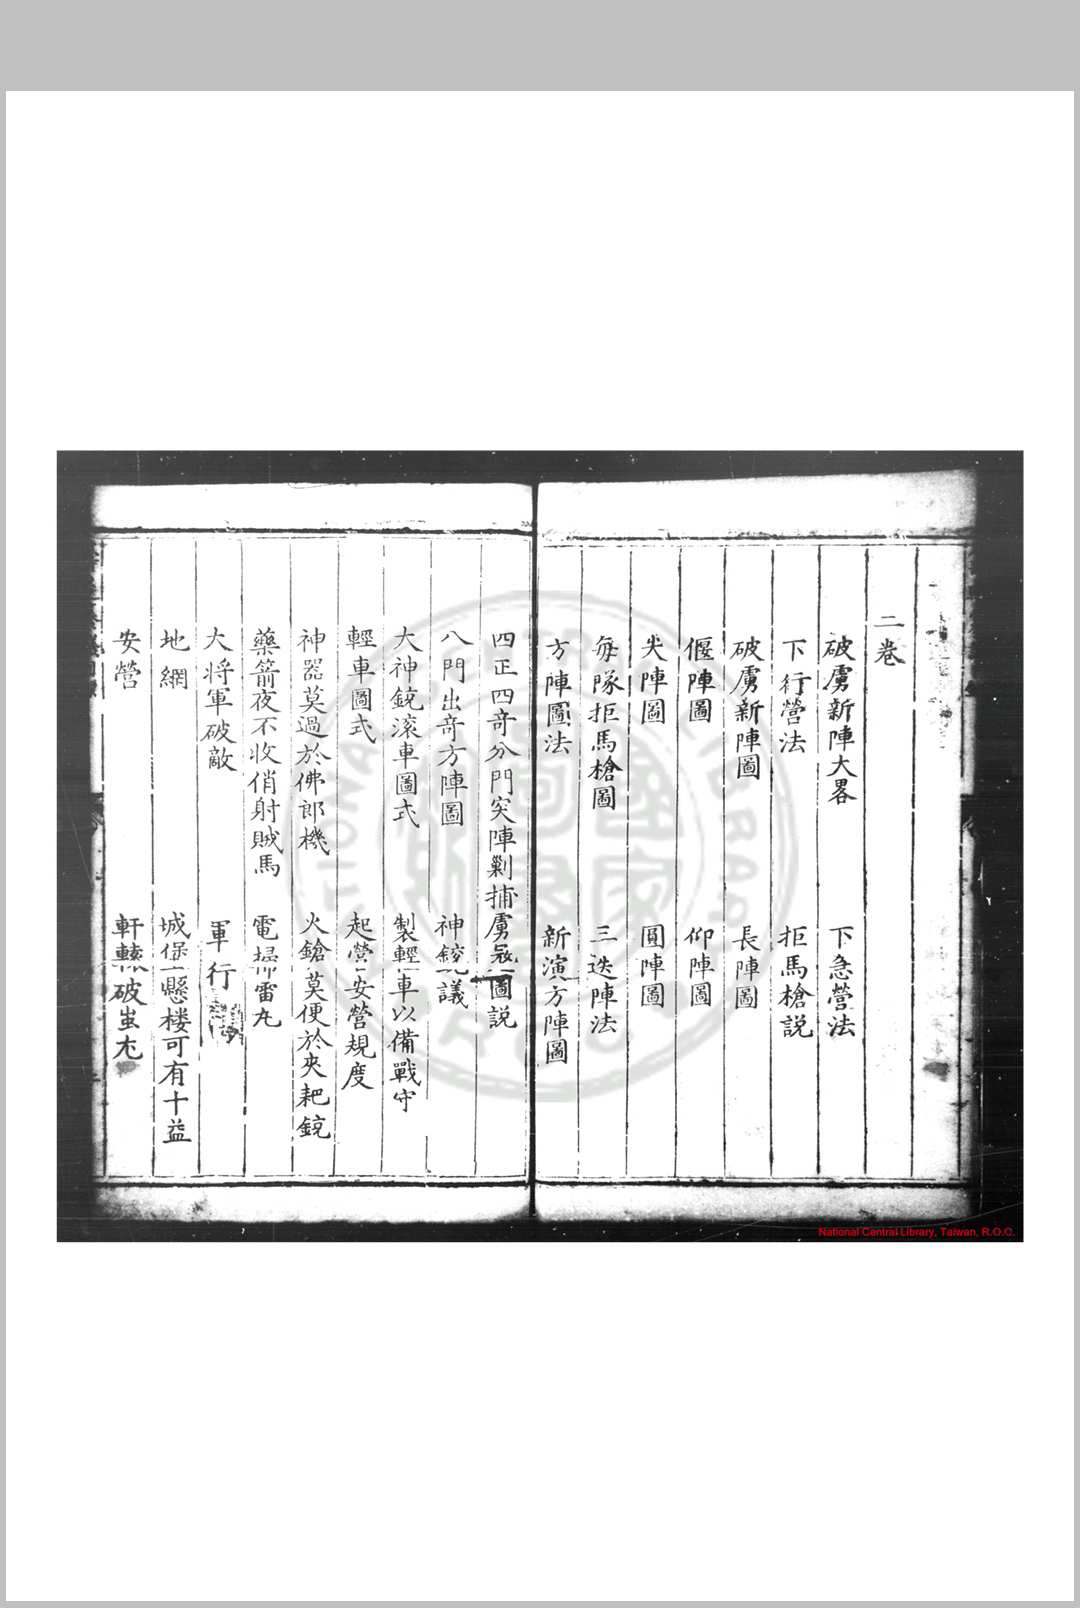 二卷
破虜新陣大畧 下急營法
下行營法 拒馬槍說
破虜新陣圖 長陣圖
偃陣圖 仰陣圖
尖陣圖 圓陣圖
每隊拒馬槍圖 三迭陣法
方陣圖法 新演方陣圖
四正四奇分門突陣剿捕虜寇圖説
八門出奇方陣圖 神銃議
大神銃滚車圖式 製輕車以備戰守
輕車圖式 起營安營規度
神器莫過於佛郎機 火鎗莫便於夾耙銃
藥箭夜不收俏射賊馬 電掃雷丸
大將軍破敵 軍行
地網 城堡懸楼可有十益
安營 軒轅破蚩尤
National Central Library, Taiwan, R.O.C.